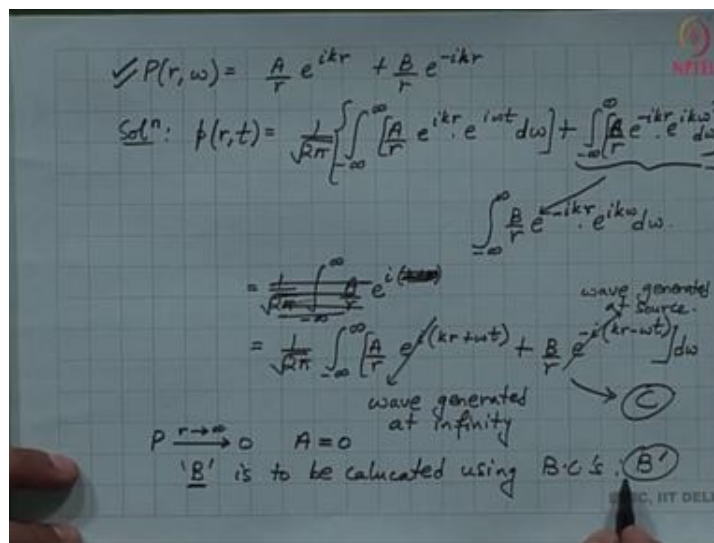 P(r, ω) = A/r e^{ikr} + B/r e^{-ikr}
NPTEL
Solⁿ: p(r,t) = 1/√2π { ∫_{-∞}^{∞} [A/r e^{ikr} . e^{iωt} dω] + ∫_{-∞}^{∞} [B/r e^{-ikr} . e^{ikω} dω
∫_{-∞}^{∞} B/r e^{-ikr} . e^{ikω} dω.
= 1/√2π ∫_{-∞}^{∞} A/r e^{i(
wave generated
at source.
= 1/√2π ∫_{-∞}^{∞} [A/r e^{i(kr+ωt)} + B/r e^{-i(kr-ωt)}] dω
wave generated
at infinity
C
P r→∞ 0 A=0
'B' is to be calucated using B.C's. B'
IIT DEL